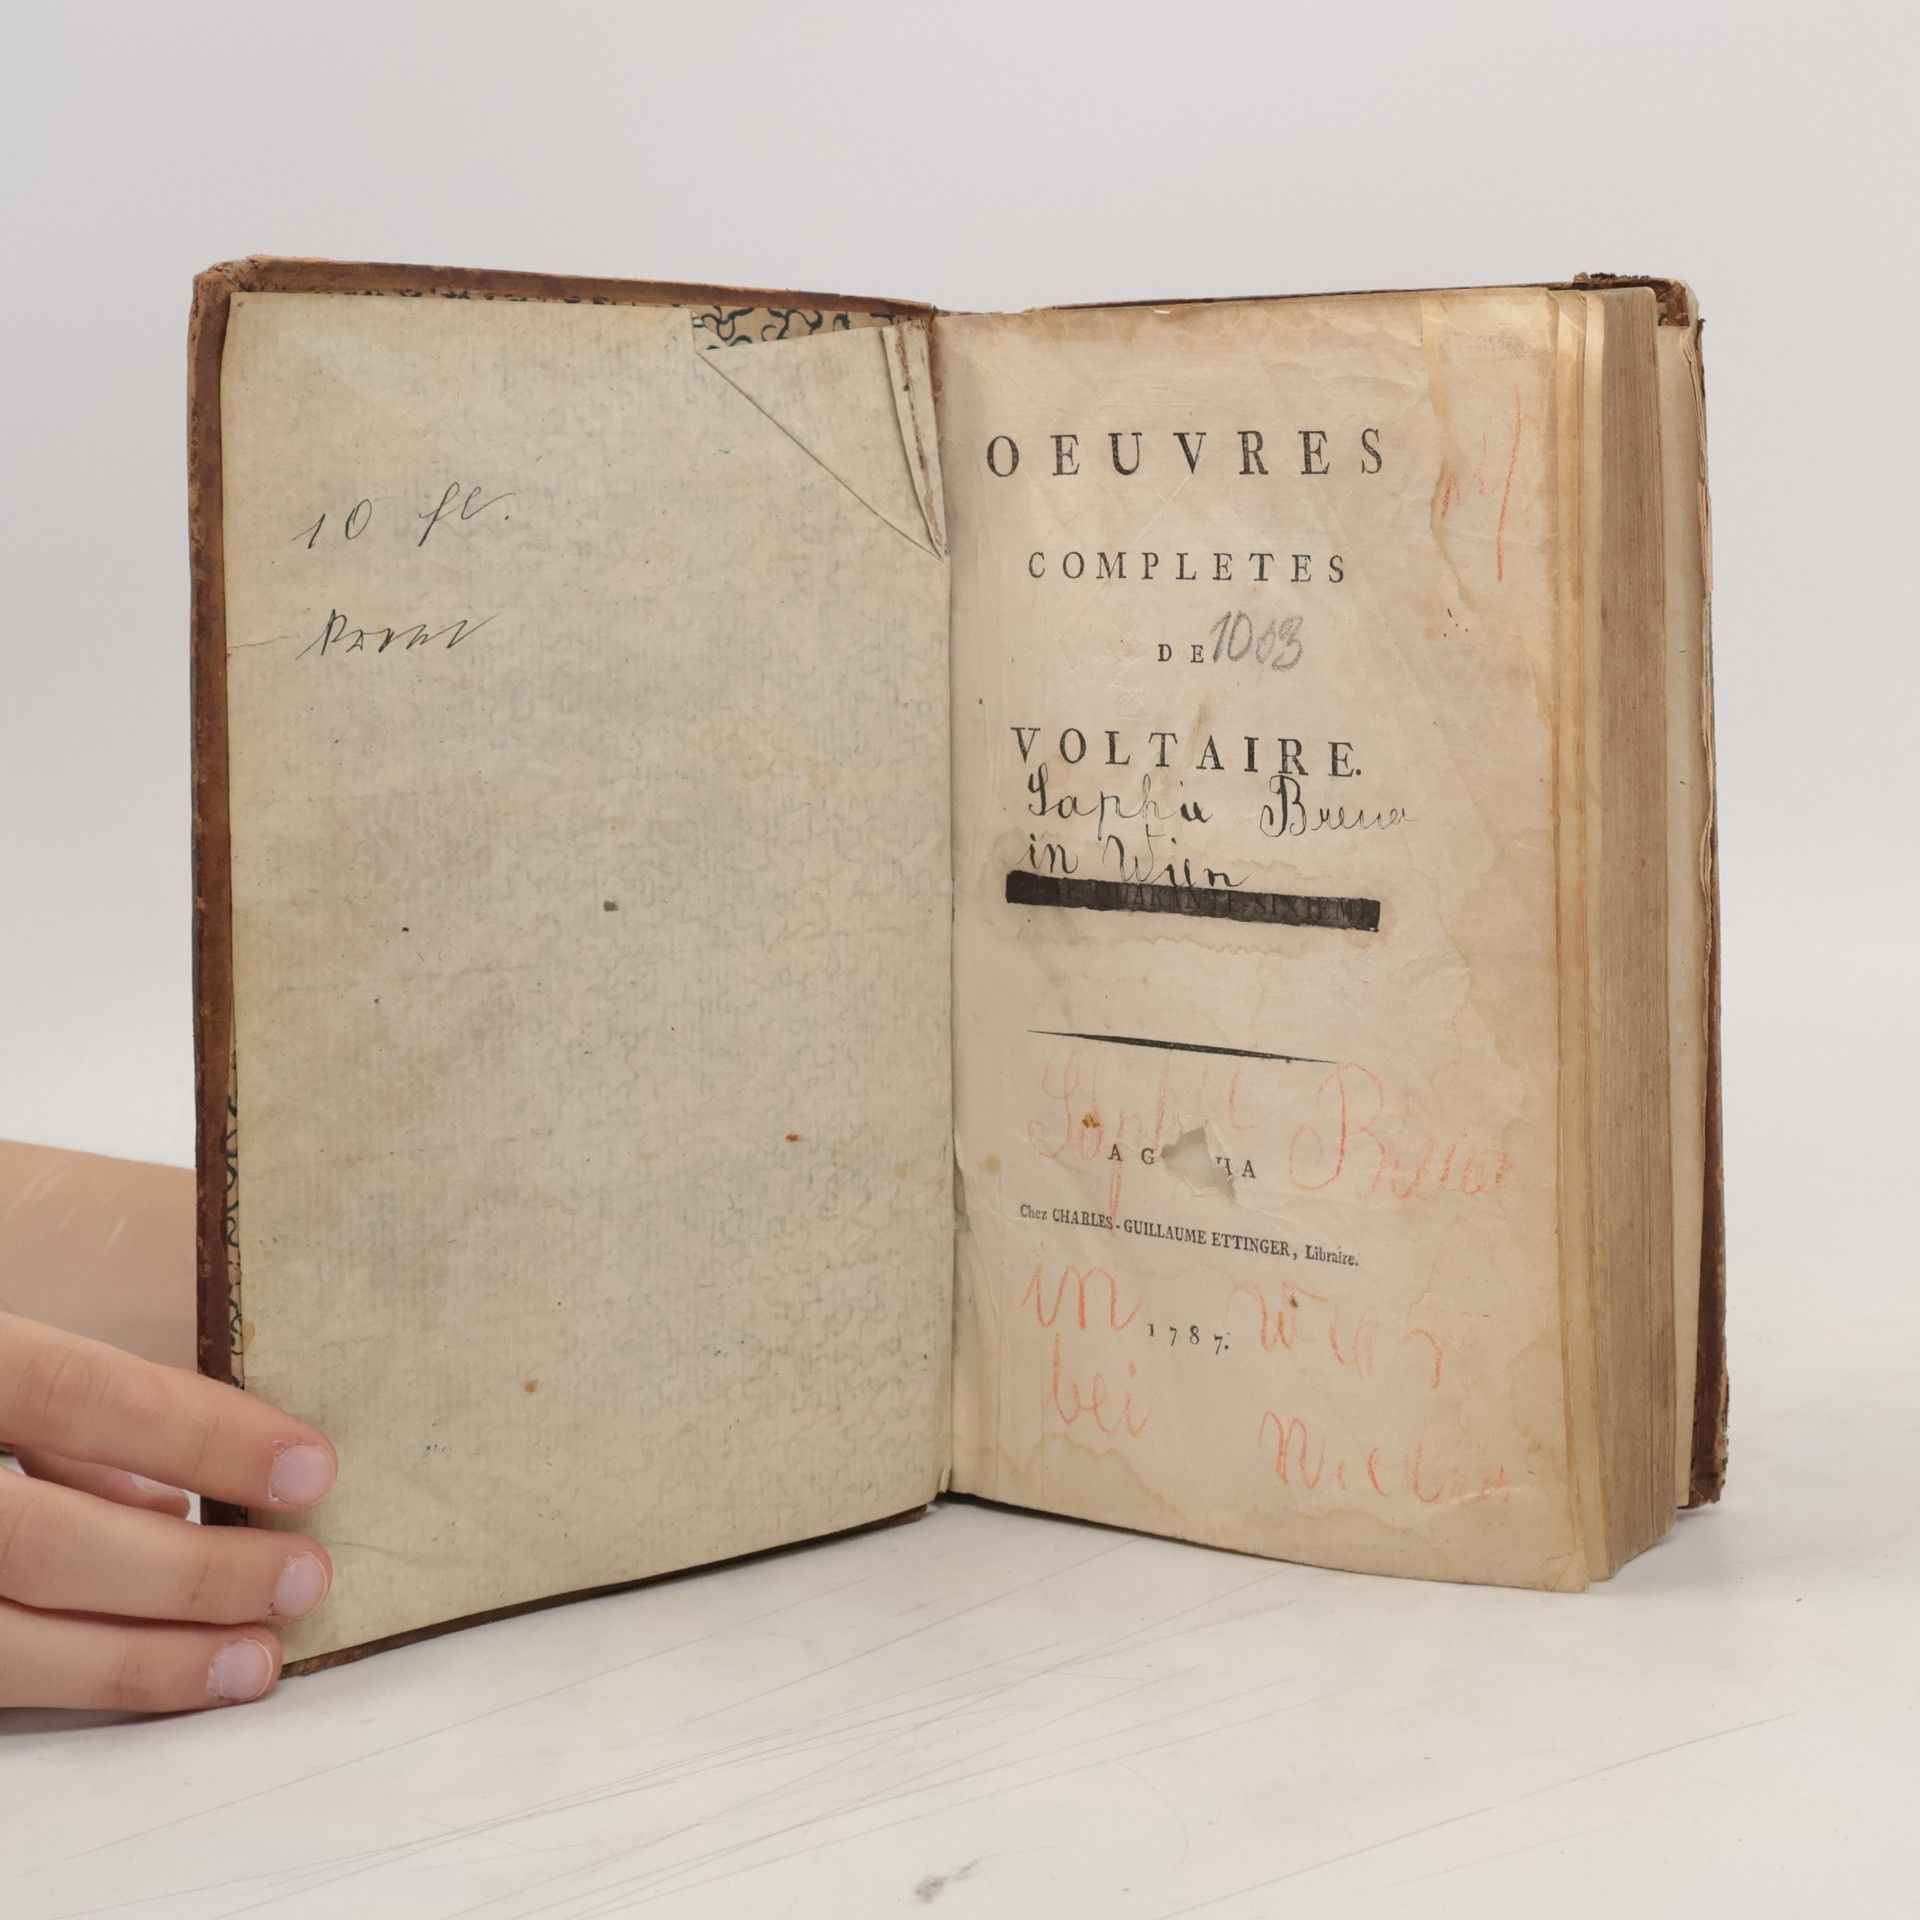 10 fl.
OEUVRES
COMPLETES
DE 1003
VOLTAIRE.
Sophie Breuer
in Wien
QUARANTE-SIXIEME
Sophie Breuer
A G HA
Chez CHARLES-GUILLAUME ETTINGER, Libraire.
in Wien
1787.
bei